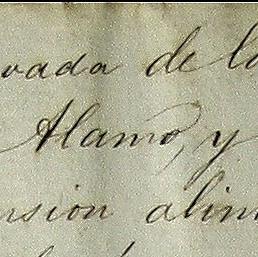 vada de l
Alamo, y
nsion alim